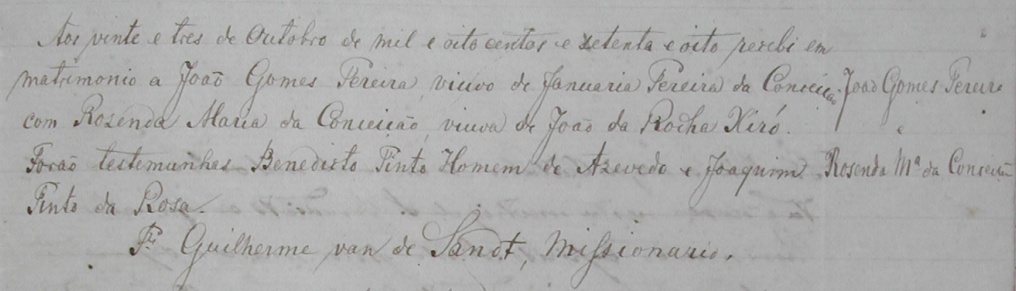 Aos vinte e tres de Outubro de mil e oito centos e setenta e oito recebi em
matrimonio a João Gomes Pereira, viuvo de Januaria Pereira da Conceição
com Rosenda Maria da Conceição, viuva de João da Rocha Xiró.
Forão testemunhas Benedicto Pinto Homem de Azevedo e Joaquim
Pinto da Rosa.
Fr. Guilherme van de Sandt, Missionario.
João Gomes Pereira
e
Rosenda Mª da Conceição